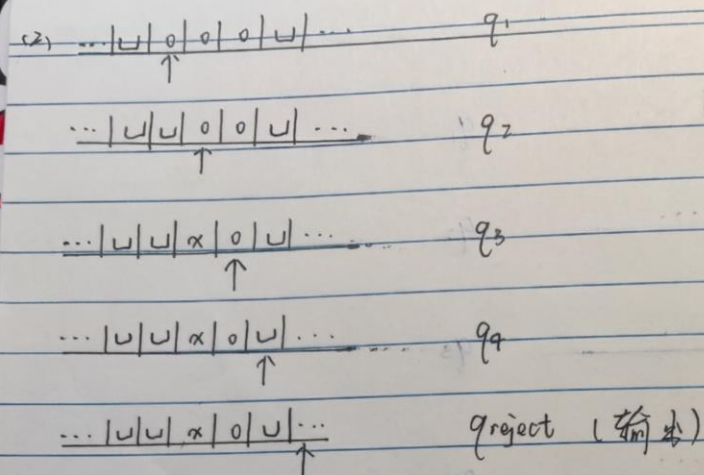 (2) ...|⊔|0|0|0|⊔|... q1
↑
...|⊔|⊔|0|0|⊔|... q2
↑
...|⊔|⊔|x|0|⊔|... q3
↑
...|⊔|⊔|x|0|⊔|... q4
↑
...|⊔|⊔|x|0|⊔|... qreject (输出)
↑